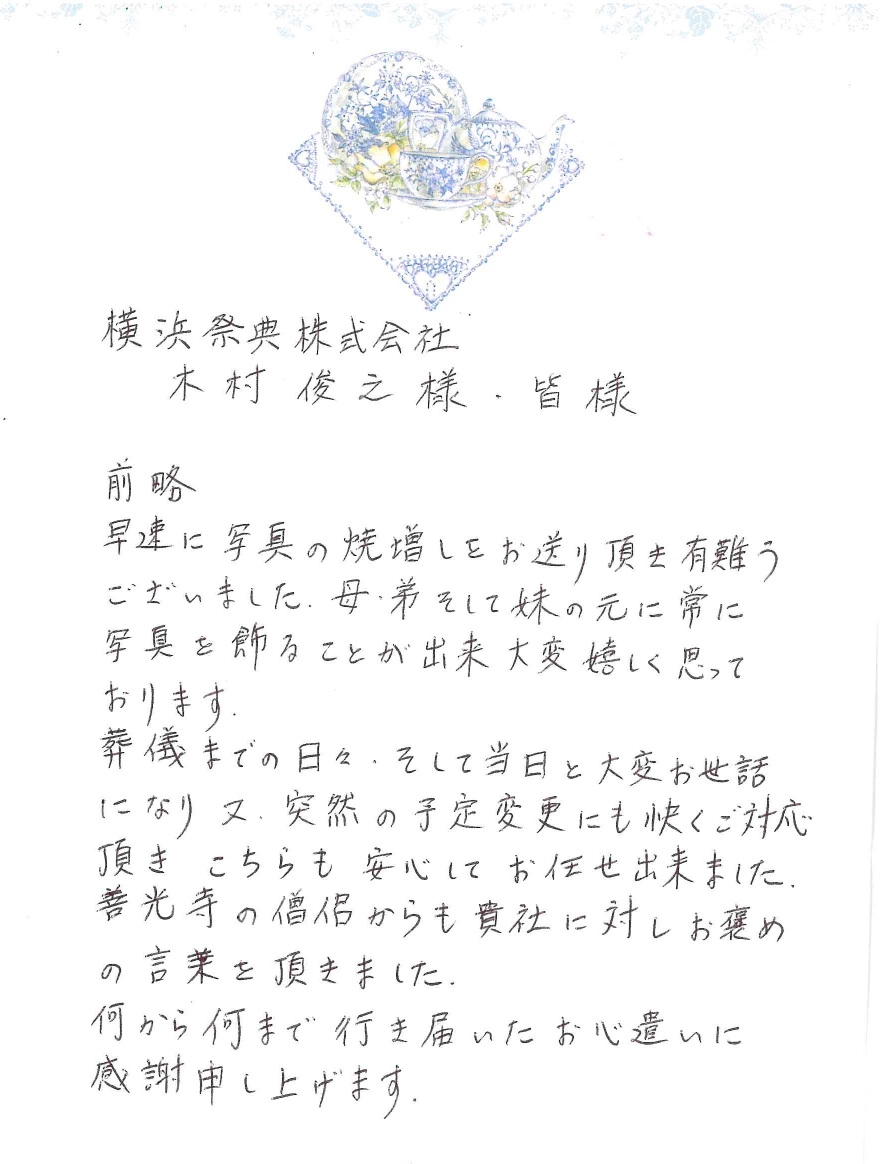 横浜祭典株式会社
木村俊之様・皆様
前略
早速に写真の焼増しをお送り頂き有難う
ございました.母・弟そして妹の元に常に
写真を飾ることが出来大変嬉しく思って
おります.
葬儀までの日々・そして当日と大変お世話
になり又.突然の予定変更にも快くご対応
頂き こちらも 安心して お任せ出来ました.
善光寺の僧侶からも貴社に対しお褒め
の言葉を頂きました.
何から何まで行き届いたお心遣いに
感謝申し上げます.